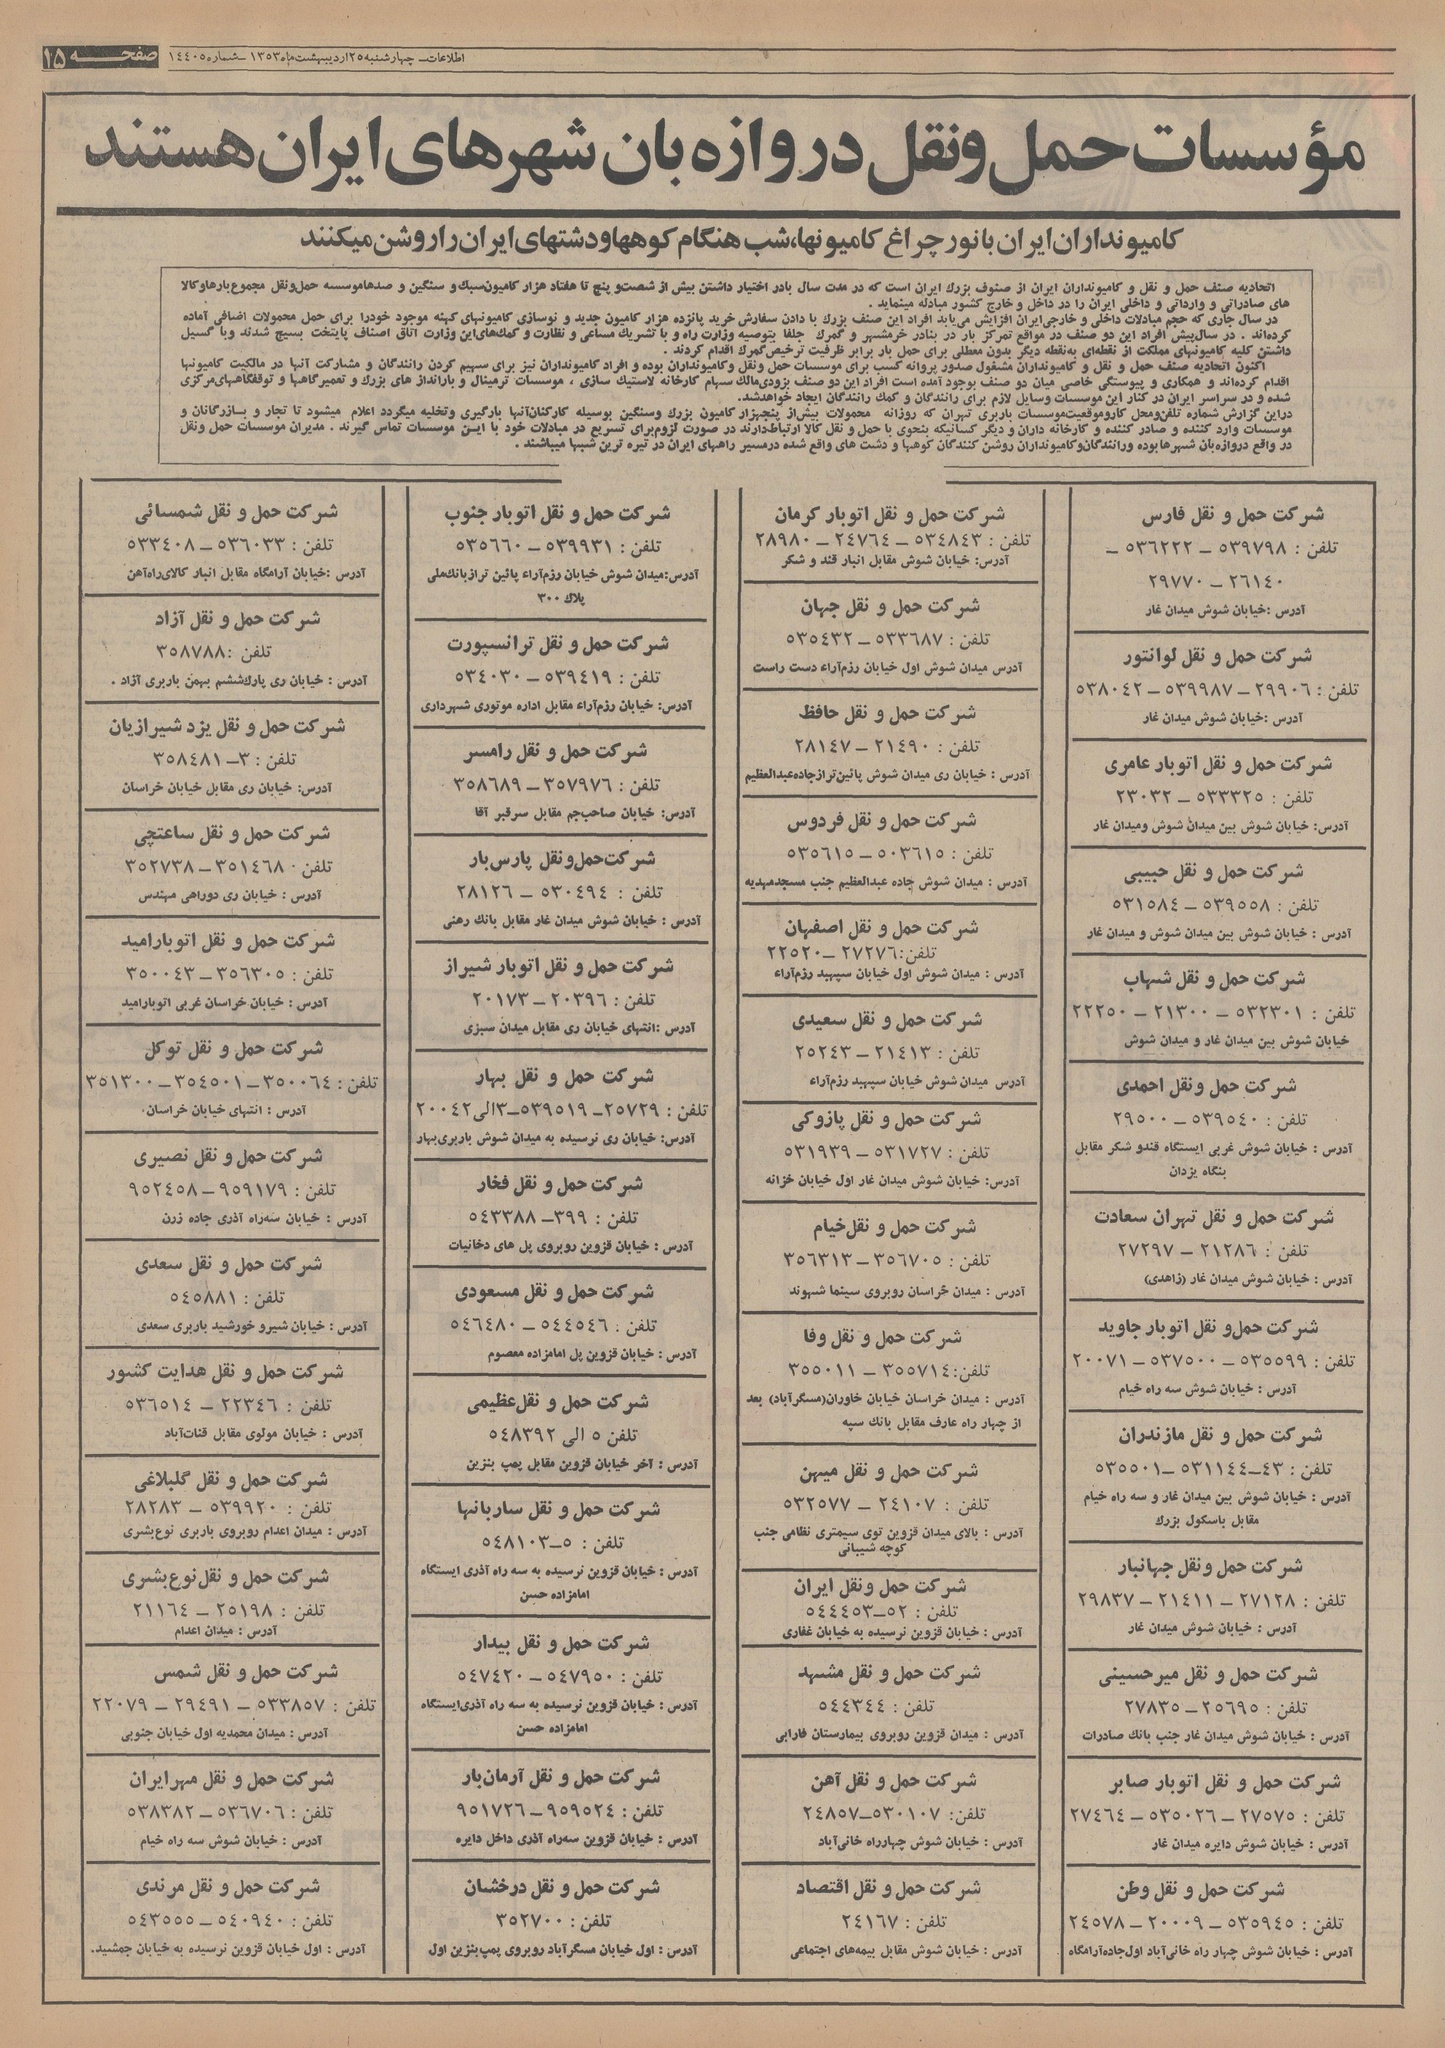 صفحه ۱۵
اطلاعات ـ چهارشنبه ۲۵ اردیبهشت ماه ۱۳۵۳ ـ شماره ۱۴۴۰۵
مؤسسات حمل ونقل دروازه بان شهرهای ایران هستند
کامیونداران ایران با نور چراغ کامیونها، شب هنگام کوهها و دشتهای ایران را روشن میکنند
اتحادیه صنف حمل و نقل و کامیونداران ایران از صنوف بزرك ایران است که در مدت سال بادر اختیار داشتن بیش از شصت و پنج تا هفتاد هزار کامیون سبك و سنگین و صدها موسسه حمل ونقل مجموع بارها و کالا
های صادراتی و وارداتی و داخلی ایران را در داخل و خارج کشور مبادله مینماید .
در سال جاری که حجم مبادلات داخلی و خارجی ایران افزایش می‌یابد افراد این صنف بزرك با دادن سفارش خرید پانزده هزار کامیون جدید و نوسازی کامیونهای کهنه موجود خودرا برای حمل محمولات اضافی آماده
کرده‌اند . در سال پیش افراد این دو صنف در مواقع تمرکز بار در بنادر خرمشهر و گمرك جلفا بتوصیه وزارت راه و با تشریك مساعی و نظارت و کمك های این وزارت اتاق اصناف پایتخت بسیج شدند وبا گسیل
داشتن کلیه کامیونهای مملکت از نقطه‌ای به نقطه دیگر بدون معطلی برای حمل بار برابر ظرفیت ترخیص گمرك اقدام کردند .
اکنون اتحادیه صنف حمل و نقل و کامیونداران مشغول صدور پروانه کسب برای موسسات حمل ونقل وکامیونداران بوده و افراد کامیونداران نیز برای سهیم کردن رانندگان و مشارکت آنها در مالکیت کامیونها
اقدام کرده‌اند و همکاری و پیوستگی خاصی میان دو صنف بوجود آمده است افراد این دو صنف بزودی مالك سهام کارخانه لاستیك سازی ، موسسات ترمینال و بارانداز های بزرك و تعمیرگاهها و توقفگاههای مرکزی
شده و در سراسر ایران در کنار این موسسات وسایل لازم برای رانندگان و کمك رانندگان ایجاد خواهد شد.
دراین گزارش شماره تلفن و محل کار و موقعیت موسسات باربری تهران که روزانه محمولات بیش از پنجهزار کامیون بزرك وسنگین بوسیله کارکنان آنها بارگیری و تخلیه میگردد اعلام میشود تا تجار و بازرگانان و
موسسات وارد کننده و صادر کننده و کارخانه داران و دیگر کسانیکه بنحوی با حمل و نقل کالا ارتباط دارند در صورت لزوم برای تسریع در مبادلات خود با این موسسات تماس گیرند . مدیران موسسات حمل ونقل
در واقع دروازه‌بان شهرها بوده و رانندگان و کامیونداران روشن کنندگان کوهها و دشت های واقع شده در مسیر راههای ایران در تیره ترین شبها میباشند .
شرکت حمل و نقل فارس
تلفن : ۵۳۹۷۹۸ ـ ۵۳۶۲۲۲ ـ
۲۶۱۴۰ ـ ۲۹۷۷۰
آدرس :خیابان شوش میدان غار
شرکت حمل و نقل لوانتور
تلفن : ۲۹۹۰۶ ـ ۵۳۹۹۸۷ ـ ۵۳۸۰۴۲
آدرس :خیابان شوش میدان غار
شرکت حمل و نقل اتوبار عامری
تلفن : ۵۳۳۳۲۵ ـ ۲۳۰۳۲
آدرس: خیابان شوش بین میدان شوش ومیدان غار
شرکت حمل و نقل حبیبی
تلفن : ۵۳۹۵۵۸ ـ ۵۳۱۵۸۴
آدرس : خیابان شوش بین میدان شوش و میدان غار
شرکت حمل و نقل شهاب
تلفن : ۵۳۲۳۰۱ ـ ۲۱۳۰۰ ـ ۲۲۲۵۰
خیابان شوش بین میدان غار و میدان شوش
شرکت حمل ونقل احمدی
تلفن : ۵۳۹۵۴۰ ـ ۲۹۵۰۰
آدرس : خیابان شوش غربی ایستگاه قندو شکر مقابل
بنگاه یزدان
شرکت حمل و نقل تهران سعادت
تلفن : ۲۱۲۸۶ ـ ۲۷۲۹۷
آدرس : خیابان شوش میدان غار (زاهدی)
شرکت حمل‌و نقل اتوبار جاوید
تلفن : ۵۳۵۵۹۹ ـ ۵۳۷۵۰۰ ـ ۲۰۰۷۱
آدرس : خیابان شوش سه راه خیام
شرکت حمل و نقل مازندران
تلفن : ۴۳ـ۵۳۱۱۴۴ ـ ۵۳۵۵۰۱
آدرس : خیابان شوش بین میدان غار و سه راه خیام
مقابل باسکول بزرك
شرکت حمل ونقل جهانبار
تلفن : ۲۷۱۲۸ ـ ۲۱۴۱۱ ـ ۲۹۸۳۷
آدرس : خیابان شوش میدان غار
شرکت حمل و نقل میرحسینی
تلفن : ۲۵۶۹۵ ـ ۲۷۸۳۵
آدرس : خیابان شوش میدان غار جنب بانك صادرات
شرکت حمل و نقل اتوبار صابر
تلفن : ۲۷۵۷۵ ـ ۵۳۵۰۲۶ ـ ۲۷۴۶۴
آدرس : خیابان شوش دایره میدان غار
شرکت حمل و نقل وطن
تلفن : ۵۳۵۹۴۵ ـ ۲۰۰۰۹ ـ ۲۴۵۷۸
آدرس : خیابان شوش چهار راه خانی‌آباد اول جاده آرامگاه
شرکت حمل و نقل اتوبار کرمان
تلفن : ۵۳۴۸۴۳ ـ ۲۴۷۶۴ ـ ۲۸۹۸۰
آدرس: خیابان شوش مقابل انبار قند و شکر
شرکت حمل و نقل جهان
تلفن : ۵۳۳۶۸۷ ـ ۵۳۵۴۳۲
آدرس میدان شوش اول خیابان رزم‌آراء دست راست
شرکت حمل و نقل حافظ
تلفن : ۲۱۴۹۰ ـ ۲۸۱۴۷
آدرس : خیابان ری میدان شوش پائین‌تر ازجاده عبدالعظیم
شرکت حمل و نقل فردوس
تلفن : ۵۰۳۶۱۵ ـ ۵۳۵۶۱۵
آدرس : میدان شوش جاده عبدالعظیم جنب مسجد مهدیه
شرکت حمل و نقل اصفهان
تلفن:۲۷۲۷۶ ـ ۲۲۵۲۰
آدرس : میدان شوش اول خیابان سپهبد رزم‌آراء
شرکت حمل و نقل سعیدی
تلفن : ۲۱۴۱۳ ـ ۲۵۲۴۳
آدرس میدان شوش خیابان سپهبد رزم‌آراء
شرکت حمل و نقل پازوکی
تلفن : ۵۳۱۷۲۷ ـ ۵۳۱۹۳۹
آدرس: خیابان شوش میدان غار اول خیابان خزانه
شرکت حمل و نقل خیام
تلفن : ۳۵۶۷۰۵ ـ ۳۵۶۳۱۳
آدرس : میدان خراسان روبروی سینما شهوند
شرکت حمل و نقل وفا
تلفن:۳۵۵۷۱۴ ـ ۳۵۵۰۱۱
آدرس : میدان خراسان خیابان خاوران(مسگرآباد) بعد
از چهار راه عارف مقابل بانك سپه
شرکت حمل و نقل میهن
تلفن : ۲۴۱۰۷ ـ ۵۳۲۵۷۷
آدرس : بالای میدان قزوین توی سیمتری نظامی جنب
کوچه شیبانی
شرکت حمل ونقل ایران
تلفن : ۵۲ـ۵۴۴۴۵۳
آدرس : خیابان قزوین نرسیده به خیابان غفاری
شرکت حمل و نقل مشهد
تلفن : ۵۴۴۳۴۴
آدرس : میدان قزوین روبروی بیمارستان فارابی
شرکت حمل و نقل آهن
تلفن: ۵۳۰۱۰۷ـ۲۴۸۵۷
آدرس : خیابان شوش چهارراه خانی‌آباد
شرکت حمل و نقل اقتصاد
تلفن : ۲۴۱۶۷
آدرس : خیابان شوش مقابل بیمه‌های اجتماعی
شرکت حمل و نقل اتوبار جنوب
تلفن : ۵۳۹۹۳۱ ـ ۵۳۵۶۶۰
آدرس:میدان شوش خیابان رزم‌آراء پائین تراز بانك ملی
پلاك ۳۰۰
شرکت حمل و نقل ترانسپورت
تلفن : ۵۳۹۴۱۹ ـ ۵۳۴۰۳۰
آدرس: خیابان رزم‌آراء مقابل اداره موتوری شهرداری
شرکت حمل و نقل رامسر
تلفن : ۳۵۷۹۷۶ ـ ۳۵۸۶۸۹
آدرس: خیابان صاحب‌جم مقابل سرقبر آقا
شرکت حمل‌ونقل پارس‌بار
تلفن : ۵۳۰۴۹۴ ـ ۲۸۱۲۶
آدرس : خیابان شوش میدان غار مقابل بانك رهنی
شرکت حمل و نقل اتوبار شیراز
تلفن : ۲۰۳۹۶ ـ ۲۰۱۷۳
آدرس :انتهای خیابان ری مقابل میدان سبزی
شرکت حمل و نقل بهار
تلفن : ۲۵۷۲۹ـ ۵۳۹۵۱۹ـ۳الی۲۰۰۴۲
آدرس: خیابان ری نرسیده به میدان شوش باربری‌بهار
شرکت حمل و نقل فخار
تلفن : ۳۹۹ـ ۵۴۳۳۸۸
آدرس : خیابان قزوین روبروی پل های دخانیات
شرکت حمل و نقل مسعودی
تلفن : ۵۴۴۵۴۶ ـ ۵۴۶۴۸۰
آدرس : خیابان قزوین پل امامزاده معصوم
شرکت حمل و نقل عظیمی
تلفن ۵ الی ۵۴۸۳۹۲
آدرس : آخر خیابان قزوین مقابل پمپ بنزین
شرکت حمل و نقل ساربانها
تلفن : ۵ـ۵۴۸۱۰۳
آدرس : خیابان قزوین نرسیده به سه راه آذری ایستگاه
امامزاده حسن
شرکت حمل و نقل بیدار
تلفن : ۵۴۷۹۵۰ـ ۵۴۷۴۲۰
آدرس : خیابان قزوین نرسیده به سه راه آذری ایستگاه
امامزاده حسن
شرکت حمل و نقل آرمان‌بار
تلفن : ۹۵۹۵۲۴ـ ۹۵۱۷۲۶
آدرس : خیابان قزوین سه‌راه آذری داخل دایره
شرکت حمل و نقل درخشان
تلفن : ۳۵۲۷۰۰
آدرس : اول خیابان مسگرآباد روبروی پمپ‌بنزین اول
شرکت حمل و نقل شمسائی
تلفن : ۵۳۶۰۳۳ ـ ۵۳۳۴۰۸
آدرس :خیابان آرامگاه مقابل انبار کالای راه‌آهن
شرکت حمل و نقل آزاد
تلفن :۳۵۸۷۸۸
آدرس : خیابان ری پارك‌ششم بهمن باربری آزاد .
شرکت حمل و نقل یزد شیرازیان
تلفن : ۳ـ ۳۵۸۴۸۱
آدرس: خیابان ری مقابل خیابان خراسان
شرکت حمل و نقل ساعتچی
تلفن ۰ ۳۵۱۴۶۸ ـ ۳۵۲۷۳۸
آدرس : خیابان ری دوراهی مهندس
شرکت حمل و نقل اتوبارامید
تلفن : ۳۵۶۳۰۵ ـ ۳۵۰۰۴۳
آدرس : خیابان خراسان غربی اتوبارامید
شرکت حمل و نقل توکل
تلفن : ۳۵۰۰۶۴ـ ۳۵۴۵۰۱ـ ۳۵۱۳۰۰
آدرس : انتهای خیابان خراسان
شرکت حمل و نقل نصیری
تلفن : ۹۵۹۱۷۹ـ ۹۵۲۴۵۸
آدرس : خیابان سه‌راه آذری جاده زرن
شرکت حمل و نقل سعدی
تلفن : ۵۴۵۸۸۱
آدرس : خیابان شیرو خورشید باربری سعدی
شرکت حمل و نقل هدایت کشور
تلفن : ۲۲۳۴۶ ـ ۵۳۶۵۱۴
آدرس : خیابان مولوی مقابل قنات‌آباد
شرکت حمل و نقل گلبلاغی
تلفن : ۵۳۹۹۲۰ ـ ۲۸۲۸۳
آدرس : میدان اعدام روبروی باربری نوع‌بشری
شرکت حمل و نقل نوع‌بشری
تلفن : ۲۵۱۹۸ ـ ۲۱۱۶۴
آدرس : میدان اعدام
شرکت حمل و نقل شمس
تلفن : ۵۳۳۸۵۷ ـ ۲۹۴۹۱ ـ ۲۲۰۷۹
آدرس: میدان محمدیه اول خیابان جنوبی
شرکت حمل و نقل مهرایران
تلفن: ۵۳۶۷۰۶ـ ۵۳۸۳۸۲
آدرس : خیابان شوش سه راه خیام
شرکت حمل و نقل مرندی
تلفن : ۵۴۰۹۴۰ ـ ۵۴۳۵۵۵
آدرس : اول خیابان قزوین نرسیده به خیابان جمشید.